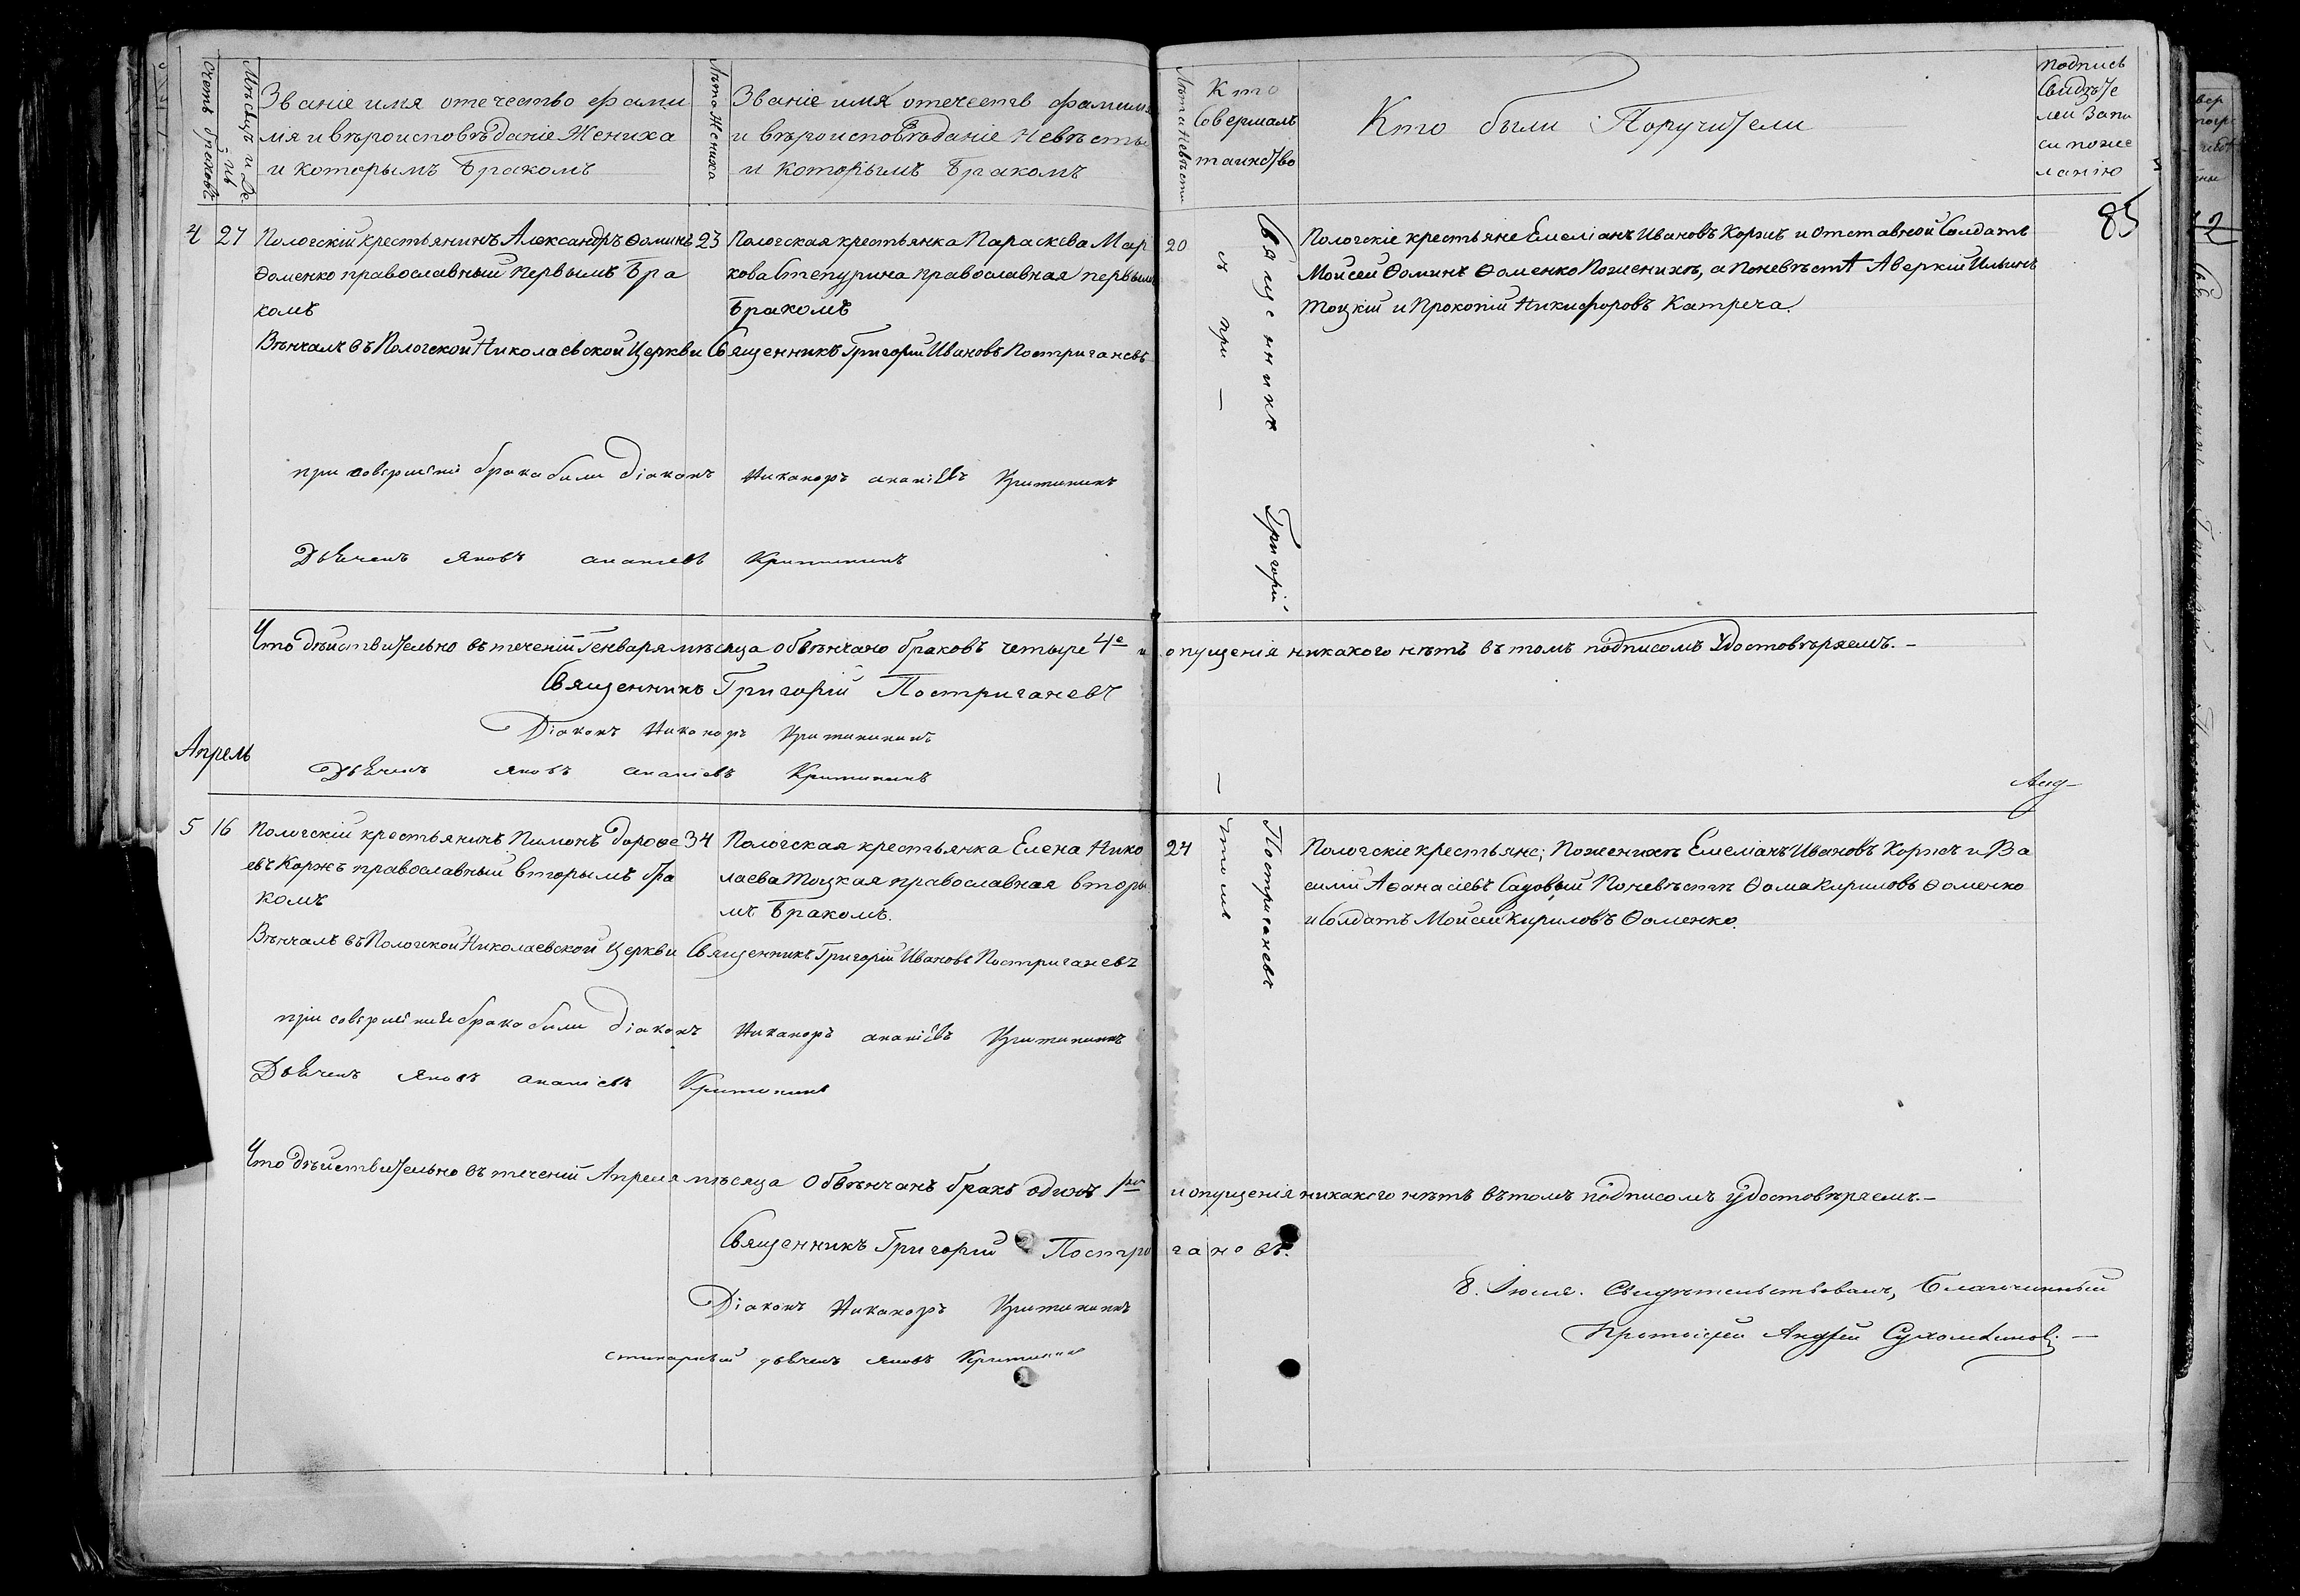 Счетъ браковъ
Мѣсяцъ и День
Званіе имя отечество фами
лія и вѣроисповѣданіе Жениха
и которымъ Бракомъ
Лѣта Жениха
Званіе имя отечеств фамилія
и вѣроисповѣданіе Невѣсты
и которымъ Бракомъ
Лѣта Невѣсты
Кто
Совершалъ
таинство
Кто были Поручители
подпись
Свидѣте
лей Запи
си поже
ланію
85
4 27 Пологскій крестьянинъ Александръ Ѳоминъ
Ѳоменко православный первымъ Бра
комъ
23
Пологская крестьянка Параскева Мар
кова Степурина православная первым
Бракомъ
20
Пологскіе крестьяне Емеліанъ Ивановъ Коржъ и отставной Солдатъ
Мойсей Ѳоминъ Ѳоменко Поженихѣ, а поневѣстѣ Аверкій Ильинъ
Тоцкій и Прокопій Никифоровъ Катреча.
Вѣнчалъ въ Пологской Николаевской Церкви Священникъ Григорій Ивановъ Постригaневъ
при совершеніи брака были Діаконъ Никаноръ ананіевъ Критининъ
Дьячекъ Яковъ ананіевъ Критининъ
Что дѣйствительно въ теченій Генваря мѣсяца обвѣнчано браковъ четыре 4е и опущенія никакого нѣтъ въ томъ подписомъ Удостовѣряемъ.—
Священникъ Григорій Постриганевъ
Діаконъ Никаноръ Критининъ
Дьячекъ Яковъ ананіевъ Критининъ
Апрель
съ при —
Священникъ Григорій
— томъ
Постриганевъ
5 16 Пологскій крестьянинъ Пимонъ дорофе
евъ Коржъ православный вторымъ бра
комъ
34
Пологская крестьянка Елена Нико
лаева Тоцкая православная вторы
мъ Бракомъ.
24
Пологскіе крестьяне; Поженихѣ Емеліанъ Ивановъ Коржъ и Ва
силій Аѳанасіевъ Садовый Поневѣстѣ Ѳома Кириловъ Ѳоменко
и Солдатъ Мойсей Кириловъ Ѳоменко.
Вѣнчалъ въ Пологской Николаевской Церкви Священникъ Григорій Ивановъ Постриганевъ
при совершеніи брака были Діаконъ Никаноръ ананіевъ Критининъ
Дьячекъ Яковъ ананіевъ Критининъ
Что дѣйствительно въ теченій Апреля мѣсяца Обвѣнчанъ бракъ одинъ 1нъ и опущенія никакого нѣтъ въ томъ подписомъ удостовѣряемъ.—
Священникъ Григорій Постриганевъ.
Діаконъ Никаноръ Критининъ
стихарный дьячекъ Яковъ Критининъ
8. Іюля. Свидѣтельствовалъ, Благочинный
Протоіерей Андрей Сухомлиновъ.—